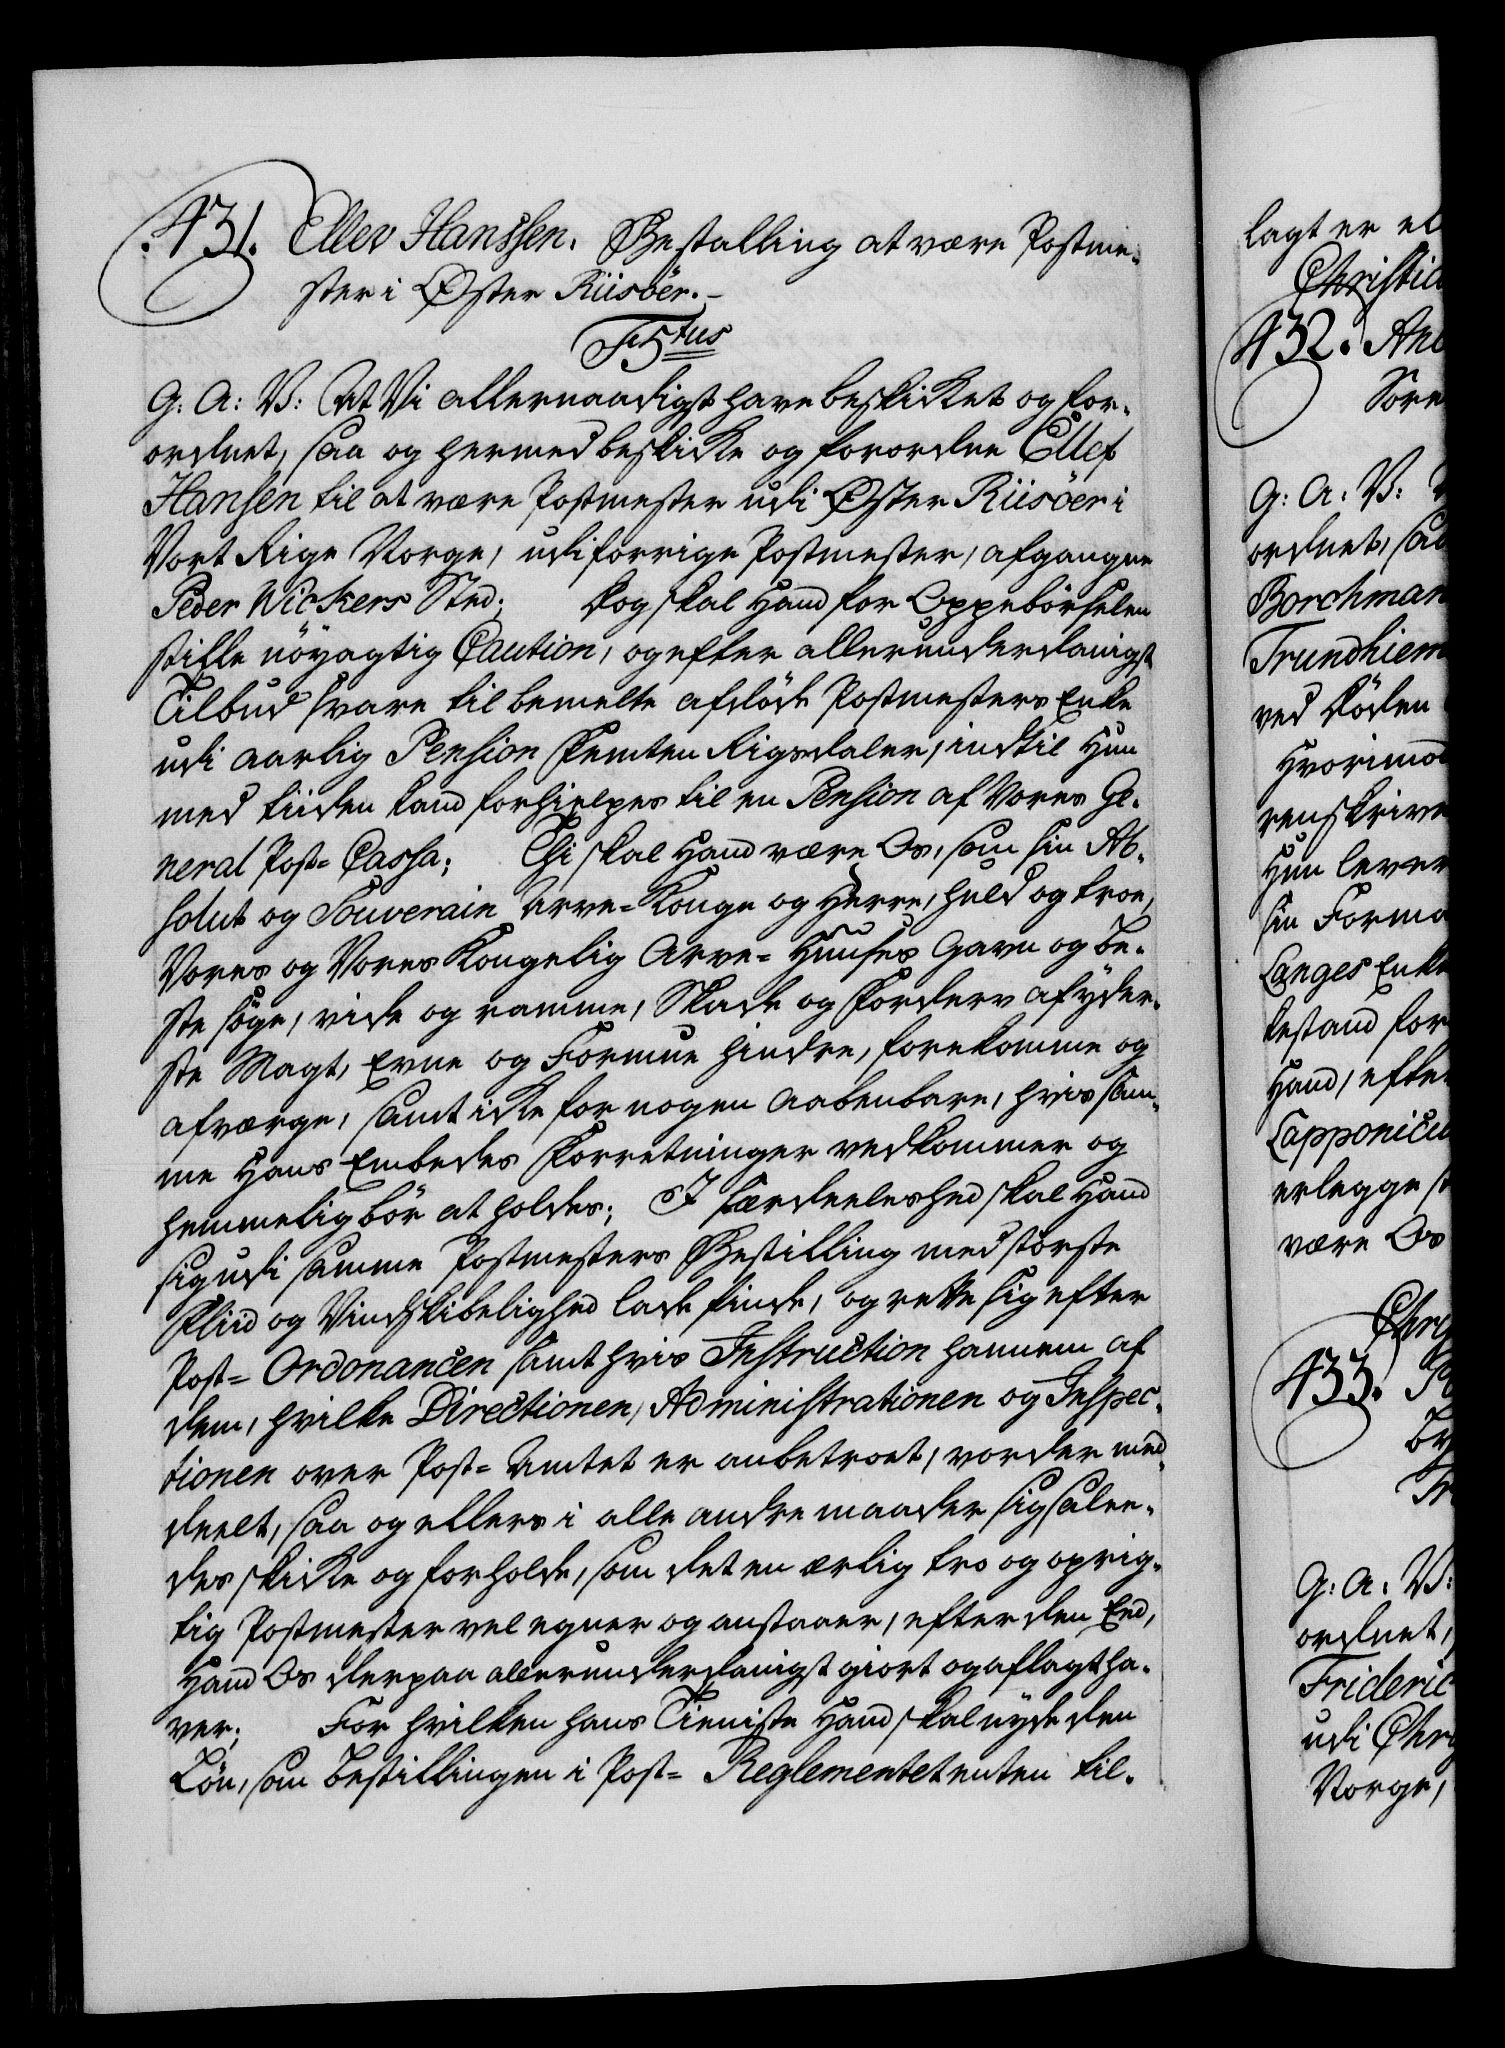 431. Ellev Hanssen. Bestalling at være Postme-
ster i Øster Riisöer.-
F5tus
G: A: V: At Vi allernaadigst have beskikket og for-
ordnet, saa og hermed beskikke og forordne Ellef
Hansen til at være Postmester udi Øster Riisöer i
Vort Rige Norge, udi forrige Postmester, afgangne
Peder Wickers Sted; dog skal Hand for Oppebörselen
stille nöyagtig Caution, og efter allerunderdanigst
Tilbud svare til bemelte afdöde Postmesters Enke
udi aarlig Pension Femten Rigsdaler, indtil Hun
med tiiden kand forhielpes til en Pension af Vores Ge-
neral Post= Cassa; Thi skal Hand være Os, som sin Ab-
solut og Souverain Arve=Konge og Herre, huld og troe,
Vores og Vores Kongelig Arve= Huuses Gavn og Be-
ste söge, vide og ramme, Skade og Forderv af yder-
ste Magt, Evne og Formue hindre, forekomme og
afværge, samt icke for nogen aabenbare, hvis sam-
me Hans Embedes Forretninger vedkommer og
hemmelig bör at holdes; I særdeeleshed skal Hand
sig udi samme Postmesters Bestilling med störste
Fliid og Vindskibelighed lade finde, og rette sig efter
Post= Ordonancen samt hvis Instruction hannem af
dem, hvilke Directionen, Administrationen og Inspec-
tionen over Post= Amtet er anbetroet, vorder med-
deelt, saa og ellers i alle andre maader sig saalee-
des skikke og forholde, som det en ærlig tro og oprig-
tig Postmester vel egner og anstaaer, efter den Eed,
Hand Os derpaa allerunderdanigst giort og aflagt ha-
ver; For hvilken hans Tieniste Hand skal nyde den
Lön, som Bestillingen i Post= Reglementet enten til-
lagt er el
Christia
432. An
Sore
G: A: V:
ordnet, saa
Borchman
Trundhiem
ved Döden
Hvorimod
renskrive
Hun lever
sin Forma
Langes Enke
bestand for
Hand, efter
Lapponicu
erlegge
være Os
Chri
433.
G: A: V:
ordnet,
Frideric
udi Chri
Norge,